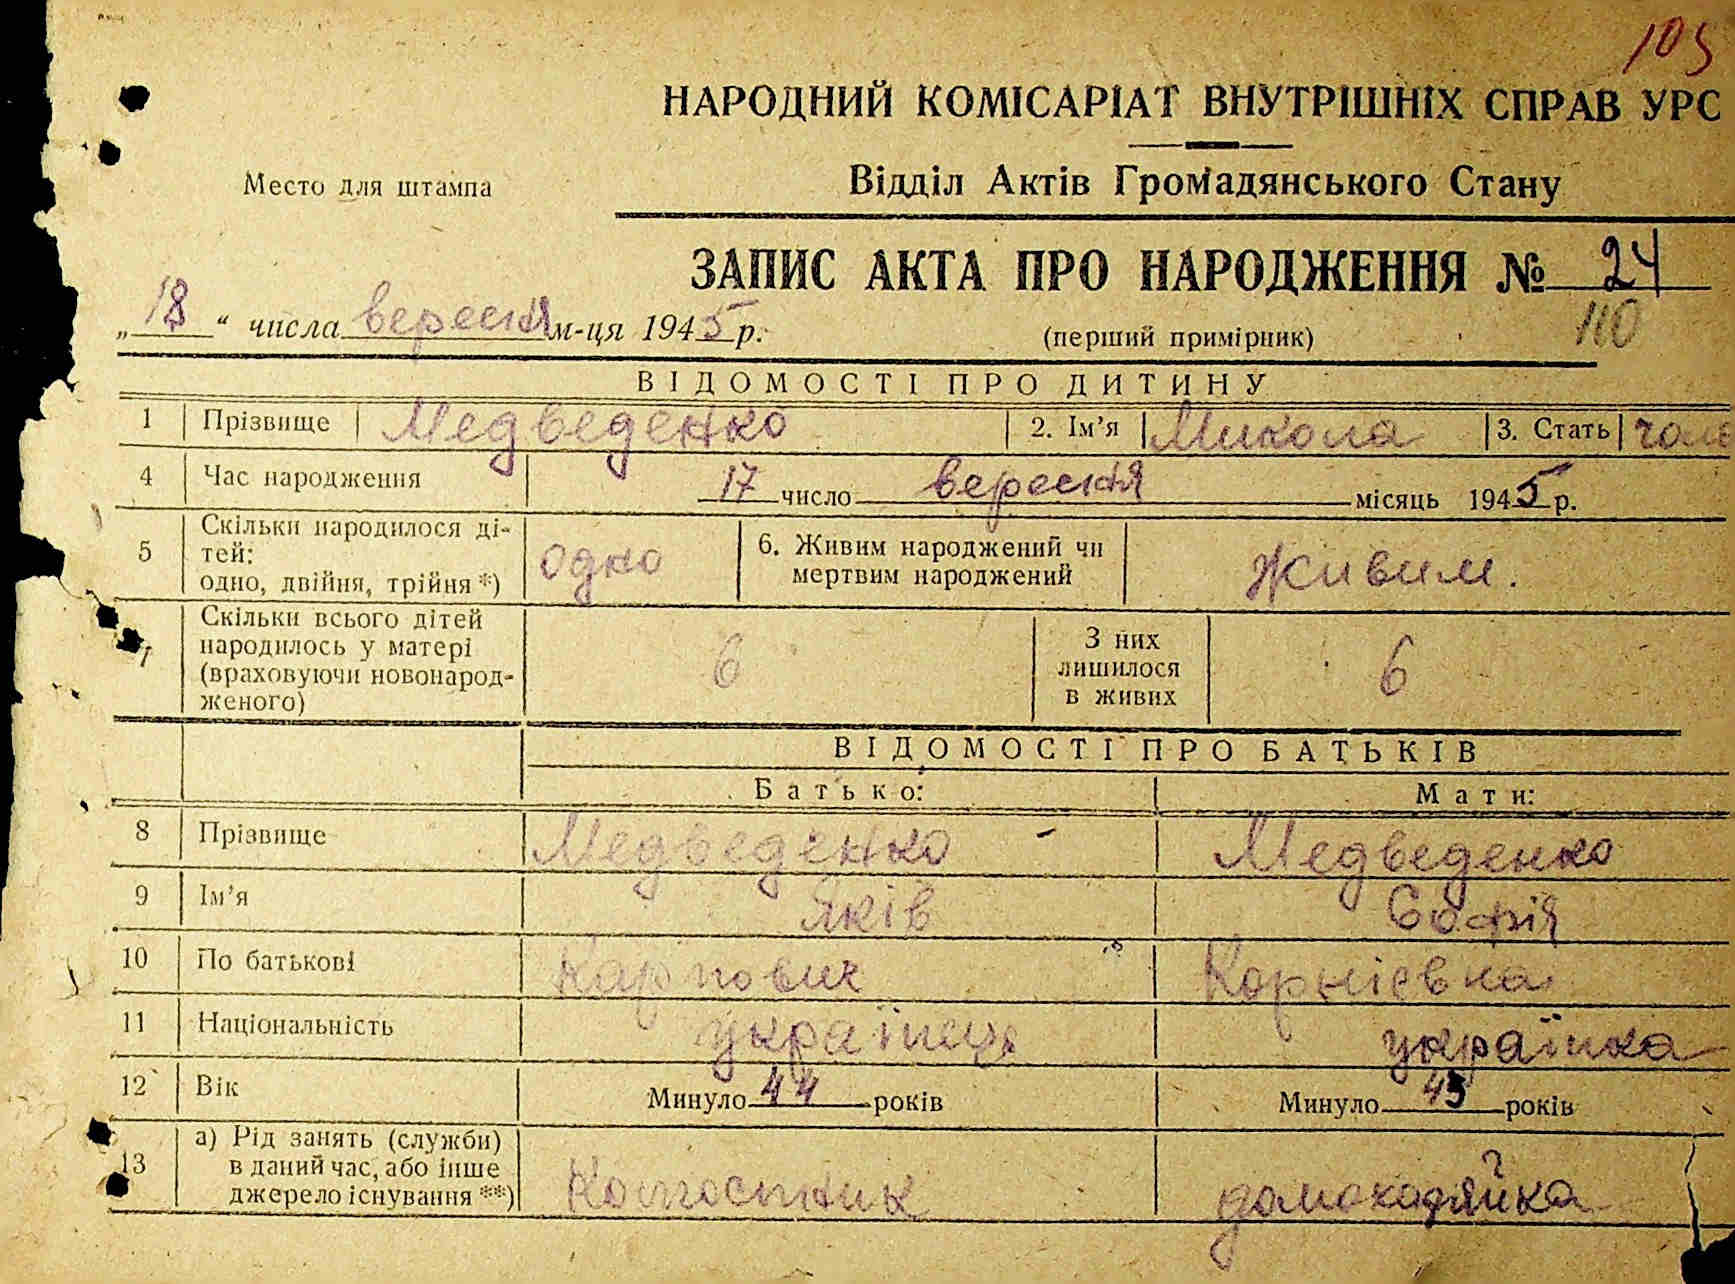 105
НАРОДНИЙ КОМІСАРІАТ ВНУТРІШНІХ СПРАВ УРС
Место для штампа
Відділ Актів Громадянського Стану
ЗАПИС АКТА ПРО НАРОДЖЕННЯ № 24
„18“ числа вересня м-ця 1945 р.
(перший примірник) 110
ВІДОМОСТІ ПРО ДИТИНУ
1 Прізвище Медведенко 2. Ім'я Микола 3. Стать чол
4 Час народження 17 число вересня місяць 1945 р.
5 Скільки народилося ді-
тей:
одно, двійня, трійня *)
одно
6. Живим народжений чи
мертвим народжений
Живим.
7 Скільки всього дітей
народилось у матері
(враховуючи новонарод-
женого)
6
З них
лишилося
в живих
6
ВІДОМОСТІ ПРО БАТЬКІВ
Батько: Мати:
8 Прізвище Медведенко - Медведенко
9 Ім'я Яків Софія
10 По батькові Карпович Корніевна
11 Національність українець українка
12 Вік Минуло 44 років Минуло 43 років
13 а) Рід занять (служби)
в даний час, або інше
джерело існування **)
Колгоспник домохазяйка